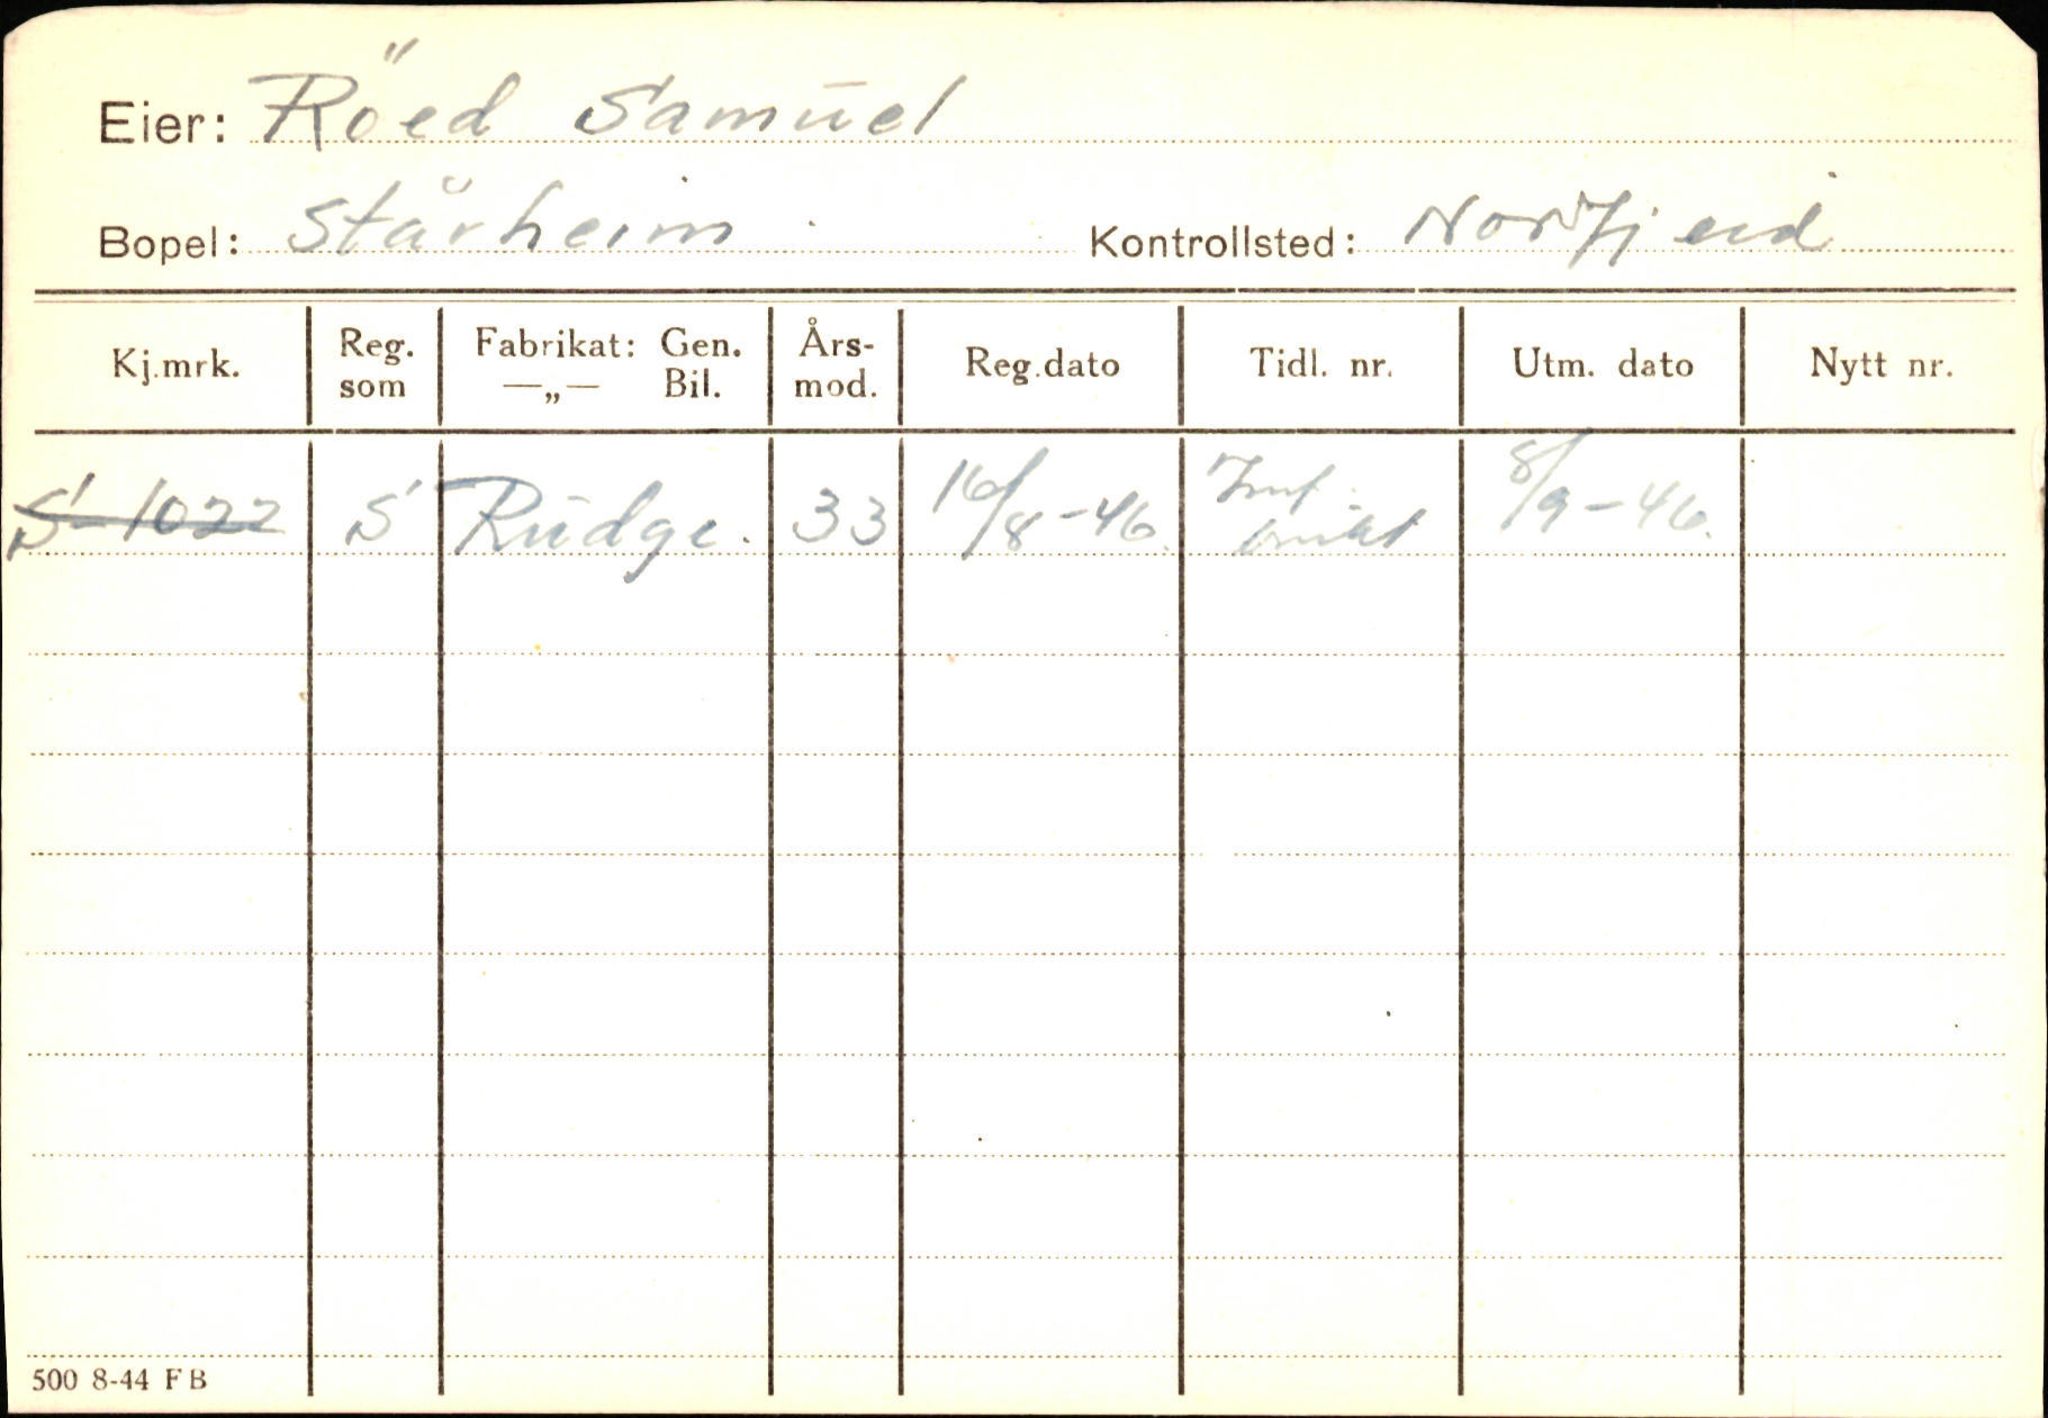 Eier: Röed Samuel
Bopel: Stårheim Kontrollsted: Norfjeid
Kj.mrk. Reg. som Fabrikat: Gen. —„— Bil. Års- mod. Reg.dato Tidl. nr. Utm. dato Nytt nr.
S-1022 S Rudge. 33 16/8-46. Imf. brukt 8/9-46.
500 8-44 FB